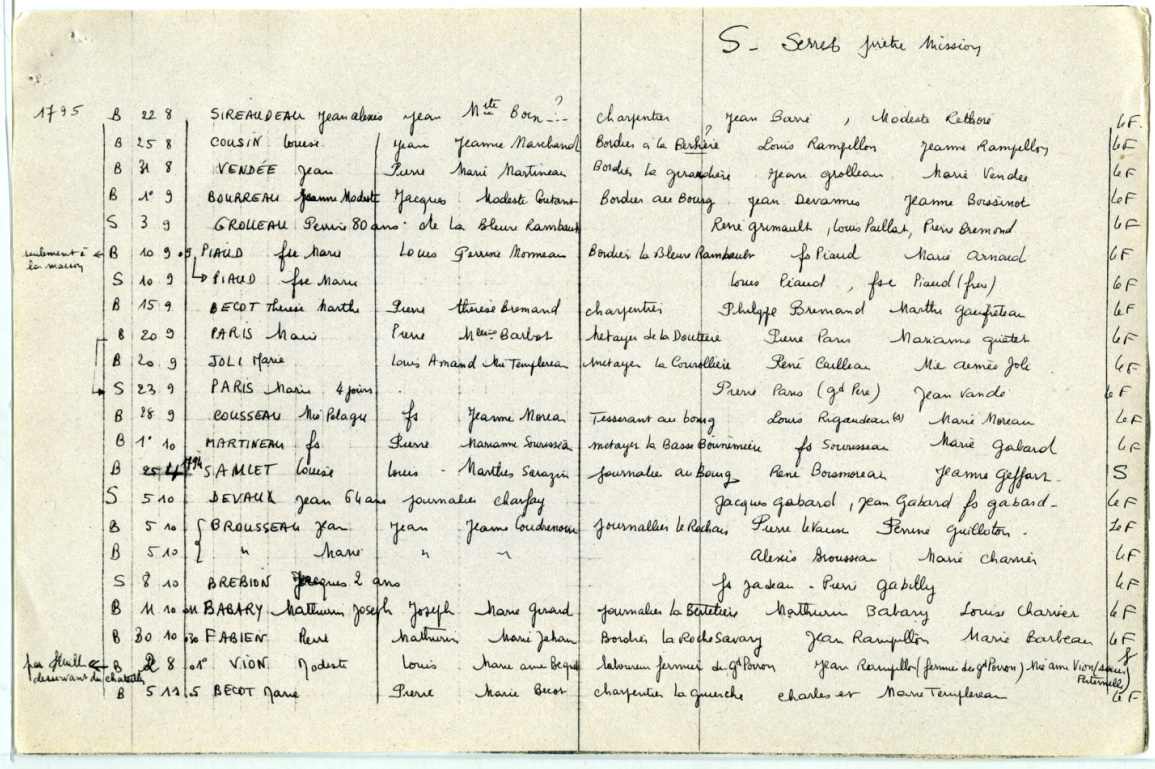 S - Serres prêtre Mission
1795 B 22 8 SIREAUDEAU Jean alexis Jean Mte Born ? charpentier Jean Barré, Modeste Rethoré LeF.
B 25 8 COUSIN Louise Jean Jeanne Marchand Bordier à la ? Louis Rampillon Jeanne Rampillon LeF
B 31 8 VENDÉE Jean Pierre Marie Martineau Bordier La girardière Jean grolleau Marie Vendée LeF
B 1° 9 BOURREAU Jeanne Modeste Jacques Modeste Coutant Bordier au Bourg Jean Devannes Jeanne Boissinot LeF
S 3 9 GROLLEAU Perrine 80 ans de La Bleure Rambault René grimault, Louis Paillat, Pierre Bremond LeF
seulement à la maison B 10 9 PIAUD fse Marie Louis Perrine Monneau Bordier La Bleure Rambault fs Piaud Marie Arnaud LeF
S 10 9 PIAUD fse Marie Louis Piaud, fse Piaud (frere) LeF
B 15 9 BECOT Therese Marthe Pierre therèse Bremand charpentier Philippe Bremand Marthe Gaufreteau LeF
B 20 9 PARIS Marie Pierre Barbot Metayer de la Pierre Paris Marianne LeF
B 20 9 JOLI Marie Louis Amand Mie Templereau metayer La René Cailleau Mie aimée Joli LeF
S 23 9 PARIS Marie 4 jours Pierre Paris (gd Père) Jean Vandé LeF
B 28 9 COUSSEAU Mie Pelagie fs Jeanne Moreau Tesserant au bourg Louis Rigaudeau (s) Marie Moreau LeF
B 1° 10 MARTINEAU fs Pierre Marianne Sourisseau metayer La Basse fs Sourisseau Marie Gabard LeF
B 25 4 1794 SAMLET Louise Louis Marthe Sarazin Journalier au Bourg René Boismoreau Jeanne Geffart S
S 5 10 DEVAUX Jean 64 ans journalier Jacques Gabard, Jean Gabard fs gabard - LeF
B 5 10 BROUSSEAU Jean Jean Jeanne Coudrenou Journallier le Rochais Pierre Levaux Perine Guilloton. LeF
B 5 10 " Marie " " Alexis Brousseau Marie Charrier LeF
S 8 10 BREBION Jacques 2 ans fs Jadeau - Pierre Gabilly LeF
B 11 10 11 BABARY Mathurin Joseph Joseph Marie Girard Journalier La Bertetière Mathurin Babary Louise Charier LeF
B 30 10 30 FABIEN Pierre Mathurin Marie Jehan Bordier La Roche Savary Jean Rampillon Marie Barbeau LeF
par desservant du B 2 8 1° VION Modeste Louis Marie anne Laboureur fermier du gd Poiron Jean Rampillon (fermier du gd Poiron) Mie anne Vion (soeur Paternelle)
B 5 11 5 BECOT Marie Pierre Marie Becot charpentier La guierche charles et Marie Templereau LeF